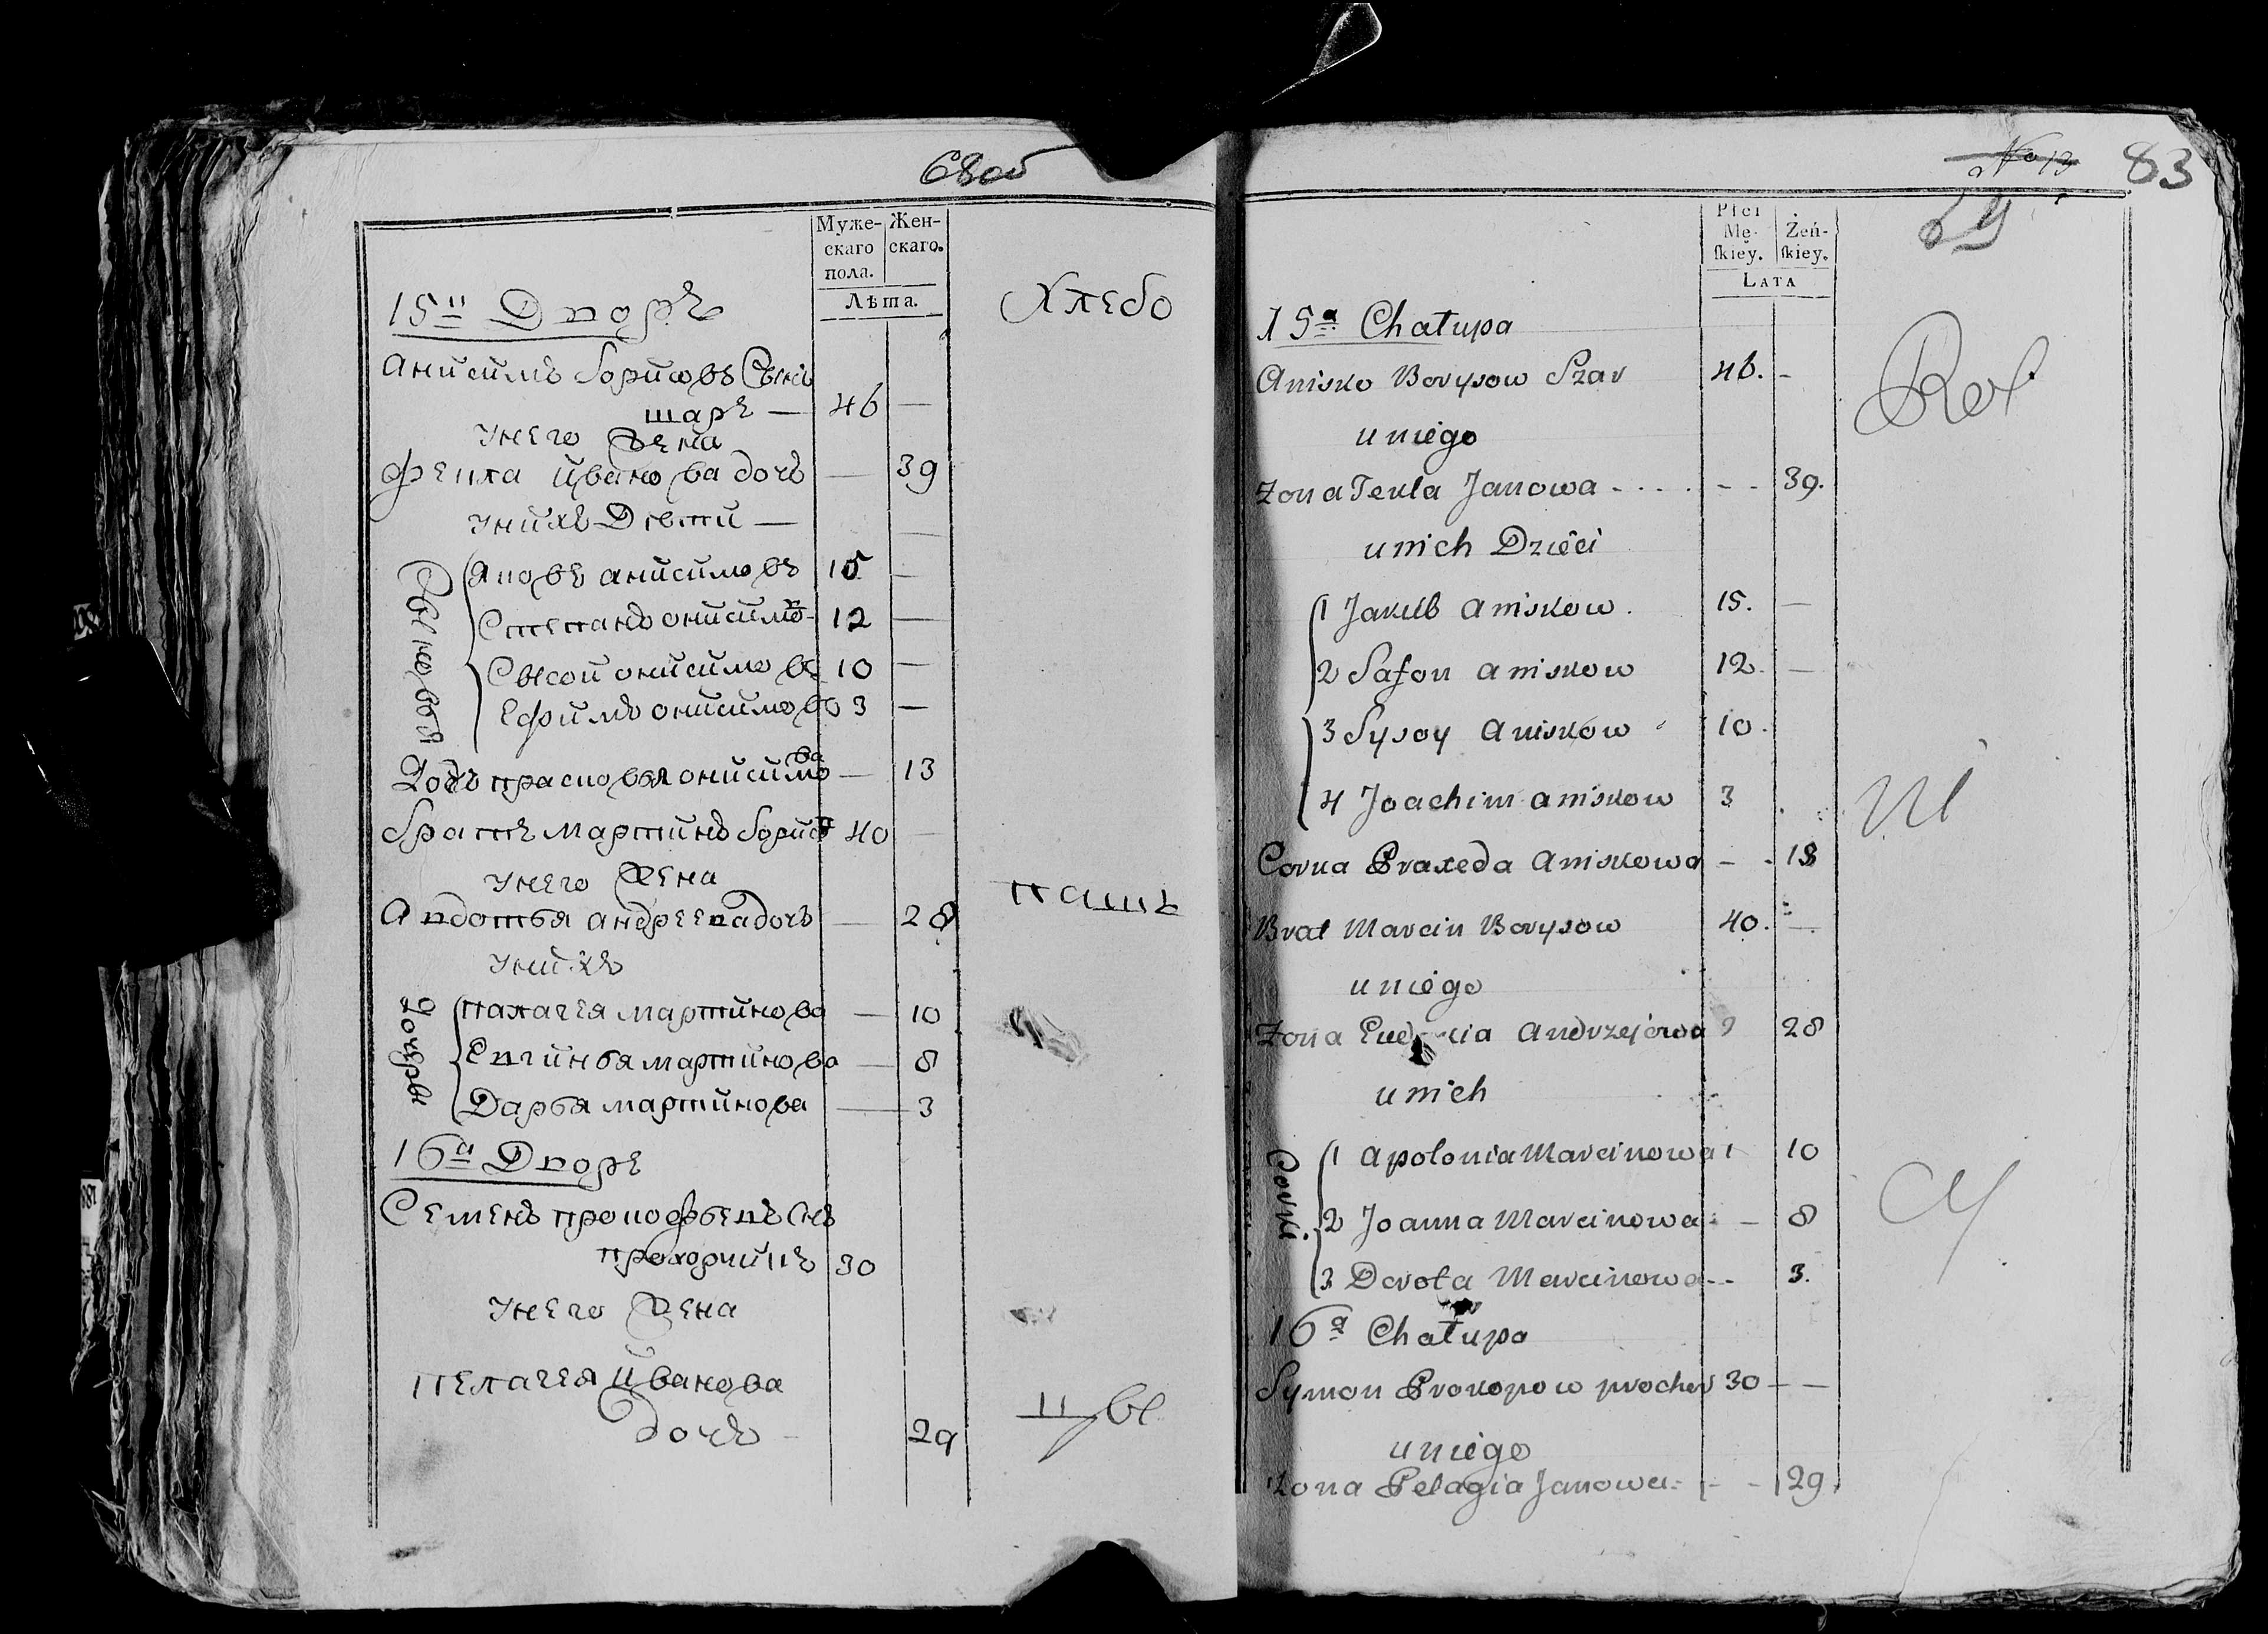 68об
Муже-скаго пола. Жен-скаго.
Лѣта.
15й Дворъ
Хлебо
Анисимъ Борисовъ Сынъ
шаръ — 46 —
унего жена
Фекла Иванова дочъ — 39
унихъ Дѣти —
Сыновья
Яковъ анисимовъ 15 —
Степанъ онисимовъ 12 —
Сысой онисимовъ 10 —
Ефимъ онисимовъ 3 —
Дочъ прасковья онисимова — 13
братъ мартинъ борисов 40 —
унего жена
Авдотья андреева дочъ — 28
пашъ
унихъ
Дочеры
палагея мартинова — 10
Евгинья мартинова — 8
Дарья мартинова — 3
16а Дворъ
Семенъ прокофьевъ Снъ
прохорчикъ 30
унего жена
пелагея Иванова
дочъ - 29
цы
No 13 83
69
Płci Mę-skiey. Żeń-skiey.
LATA
15a Chałupa
Anisko Borysow Szar 46. -
Rol
uniego
Zona Tekla Janowa - . . . - - 39.
unich Dzieci
1 Jakub Aniskow . 15. —
2 Safon Aniskow 12. —
3 Sysoy Aniskow 10.
4 Joachim Aniskow 3
ni
Corka Praxeda Aniskowa - - 13
Brat Marcin Borysow 40. —
uniego
Zona Andrzejowa 28
unich
Corki
1 Apolonia Marcinowa 10
2 Joanna Marcinowa - 8
cy
3 Dorota Marcinowa - - 3.
16a Chałupa
Symon Prokopow prochor 30 - —
uniego
Zona Pelagia Janowa - - 29